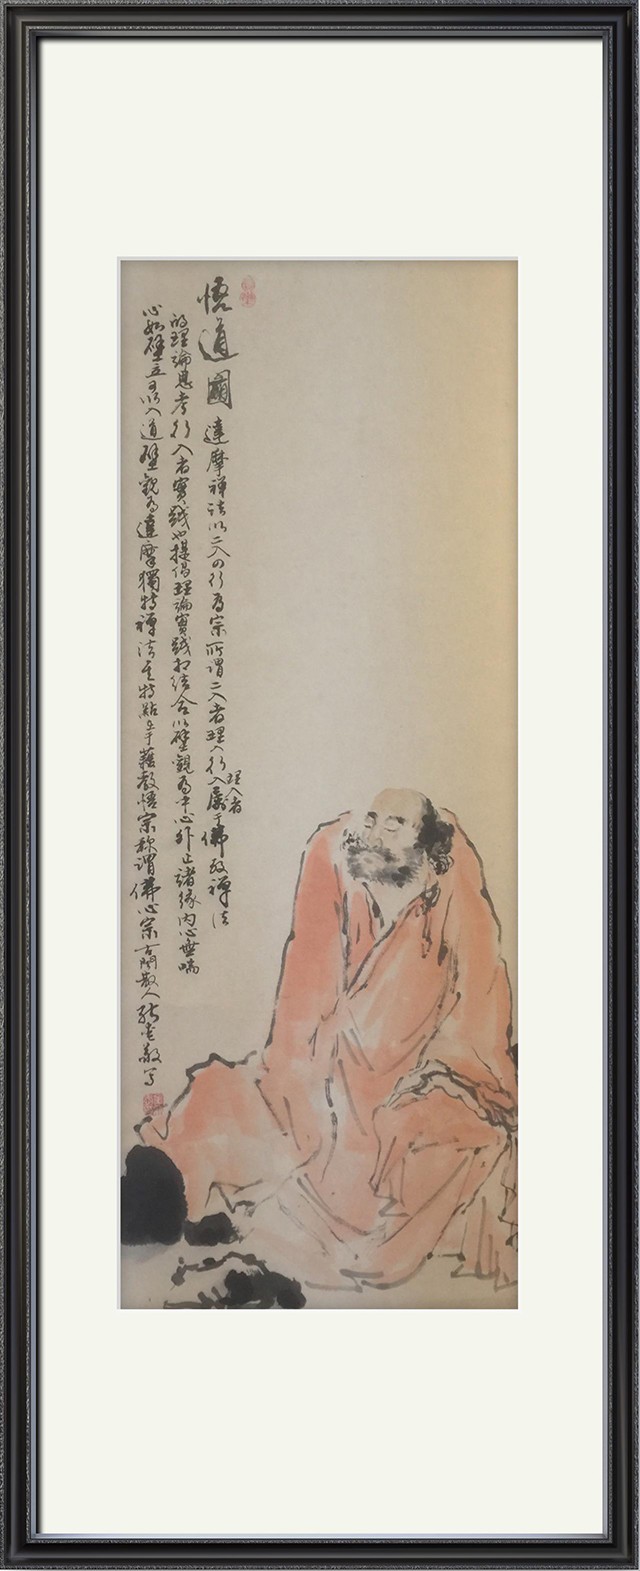 悟道圖 達摩禪法以二入四行為宗所謂二入者理入行入屬于佛教禪法
理入者
的理論思考行入者實踐也提倡理論實踐相結合以壁觀為中心外止諸緣內心無喘
心如壁立可以入道壁觀為達摩獨特禪法其特點在于藉教悟宗称謂佛心宗 古閩散人 張 敬寫